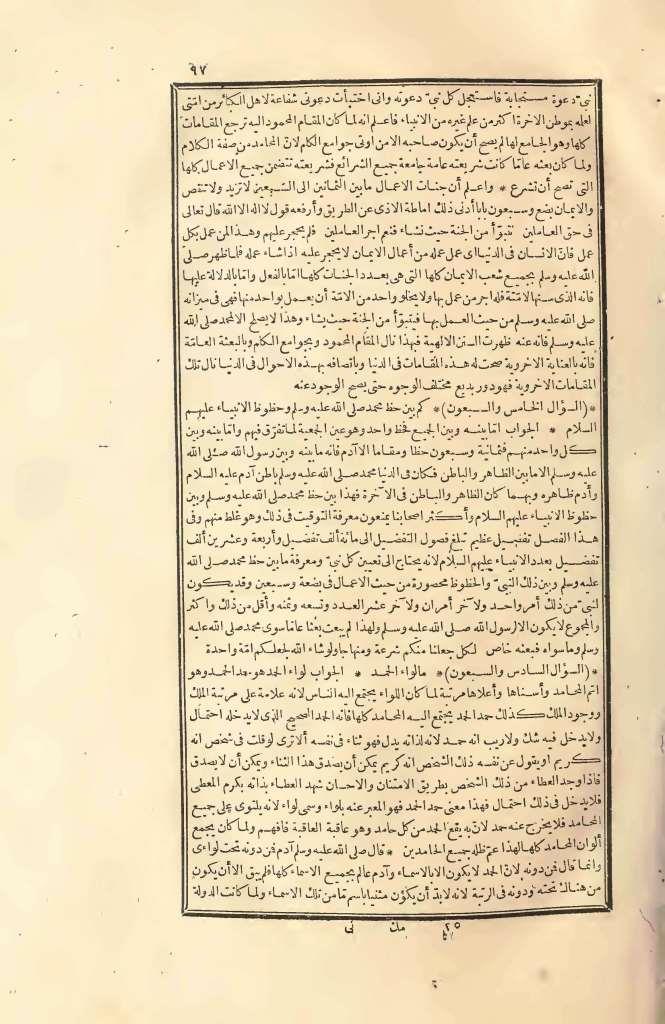 ٩٧
نبيّ دعوة مستجابة فاستعجل كل نبيّ دعوته وانى اختبأت دعوتى شفاعة لاهل الكبائر من امتى
لعلمه بموطن الاخرة اكثر من علم غيره من الانبياء فاعلم انه لما كان المقام المحمود اليه ترجع المقامات
كلها وهو الجامع لها لم يصح أن يكون صاحبه الا من اوتى جوامع الكلم لانّ المحامد من صفة الكلام
ولما كان بعثه عامّا كانت شريعته عامة جامعة جميع الشرائع فشريعته تتضمن جميع الاعمال كلها
التى تصح أن تشرع * واعلم أن جنات الاعمال ما بين الثمانين الى السبعين لا تزيد ولا تنقص
والايمان بضع وسبعون بابا أدنى ذلك اماطة الاذى عن الطريق وأرفعه قول لا اله الا الله قال تعالى
فى حق العاملين نتبوّأ من الجنة حيث نشاء فنعم اجر العاملين فلم يحجر عليهم وهذا لمن عمل بكل
عمل فانّ الانسان فى الدنيا اى عمل عمله من أعمال الايمان لا يحجر عليه اذا شاء عمله فلما ظهر صلى
الله عليه وسلم بجميع شعب الايمان كلها التى هى بعدد الجنات كلها امّا بالفعل وامّا بالدلالة عليها
فانه الذى سنها لامّته فله اجر من عمل بها ولا يخلو واحد من الامّة أن يعمل بواحد منها فهى فى ميزانه
صلى الله عليه وسلم من حيث العمل بها فيتبوّأ من الجنة حيث يشاء وهذا لا يصلح الا لمحمد صلى الله
عليه وسلم فانه عنه ظهرت السنن الالهية فبهذا نال المقام المحمود وبجوامع الكلم وبالبعثة العامّة
فانه بالعناية الاخروية صحت له هذه المقامات فى الدنيا وباتصافه بهذه الاحوال فى الدنيا نال تلك
المقامات الاخروية فهو دور بديع مختلف الوجوه حتى يصح الوجود عنه
* (السؤال الخامس والسبعون) * كم بين حظ محمد صلى الله عليه وسلم وحظوظ الانبياء عليهم
السلام * الجواب امّا بينه وبين الجميع فحظ واحد وهو عين الجمعية لما تفرّق فيهم وامّا بينه وبين
كل واحد منهم فثمانية وسبعون حظا ومقاما الا آدم فانه ما بينه وبين رسول الله صلى الله
عليه وسلم الا ما بين الظاهر والباطن فكان فى الدنيا محمد صلى الله عليه وسلم باطن آدم عليه السلام
وآدم ظاهره وبهما كان الظاهر والباطن فى الآخرة فهذا بين حظ محمد صلى الله عليه وسلم وبين
حظوظ الانبياء عليهم السلام وأكثر اصحابنا يمنعون معرفة التوقيت فى ذلك وهو غلط منهم وفى
هذا الفصل تفصيل عظيم تبلغ فصول التفضيل الى مائة ألف تفضيل وأربعة وعشرين ألف
تفضيل بعدد الانبياء عليهم السلام لانه يحتاج الى تعيين كل نبيّ ومعرفة ما بين حظ محمد صلى الله
عليه وسلم وبين ذلك النبيّ والحظوظ محصورة من حيث الاعمال فى بضعة وسبعين وقد يكون
لنبيّ من ذلك أمر واحد ولآخر أمران ولآخر عشر العدد وتسعه وثمنه وأقل من ذلك واكثر
والمجموع لا يكون الا لرسول الله صلى الله عليه وسلم ولهذا لم يبعث بعثا عامّا سوى محمد صلى الله عليه
وسلم وما سواه فبعثه خاص لكل جعلنا منكم شرعة ومنهاجا ولو شاء الله لجعلكم امّة واحدة
* (السؤال السادس والسبعون) * ما لواء الحمد * الجواب لواء الحمد هو حمد الحمد وهو
اتم المحامد وأسناها وأعلاها مرتبة لما كان اللواء يجتمع اليه الناس لانه علامة على مرتبة الملك
ووجود الملك كذلك حمد الحمد يجتمع اليه المحامد كلها فانه الحمد الصحيح الذى لا يدخله احتمال
ولا يدخل فيه شك ولا ريب انه حمد لانه لذاته يدل فهو ثناء فى نفسه ألا ترى لو قلت فى شخص انه
كريم او يقول عن نفسه ذلك الشخص انه كريم يمكن أن يصدق هذا الثناء ويمكن أن لا يصدق
فاذا وجد العطاء من ذلك الشخص بطريق الامتنان والاحسان شهد العطاء بذاته بكرم المعطى
فلا يدخل فى ذلك احتمال فهذا معنى حمد الحمد فهو المعبر عنه بلواء وسمى لواء لانه يلتوى على جميع
المحامد فلا يخرج عنه حمد لانّ به يقع الحمد من كل حامد وهو عاقبة العاقبة فافهم ولما كان يجمع
ألوان المحامد كلها لهذا عم ظله جميع الحامدين * قال صلى الله عليه وسلم آدم فمن دونه تحت لواءى
وانما قال فمن دونه لانّ الحمد لا يكون الا بالاسماء وآدم عالم بجميع الاسماء كلها فلم يبق الا أن يكون
من هناك تحته ودونه فى الرتبة لانه لا بدّ أن يكون مثنيا باسم مّا من تلك الاسماء ولما كانت الدولة
٢٥ مك نى